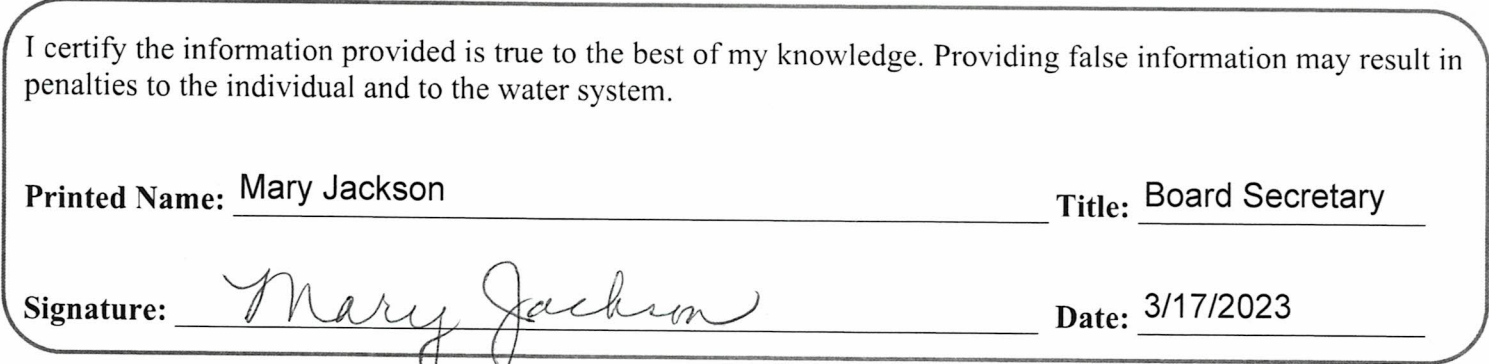 I certify the information provided is true to the best of my knowledge. Providing false information may result in
penalties to the individual and to the water system.
Printed Name: Mary Jackson Title: Board Secretary
Signature: Mary Jackson Date: 3/17/2023